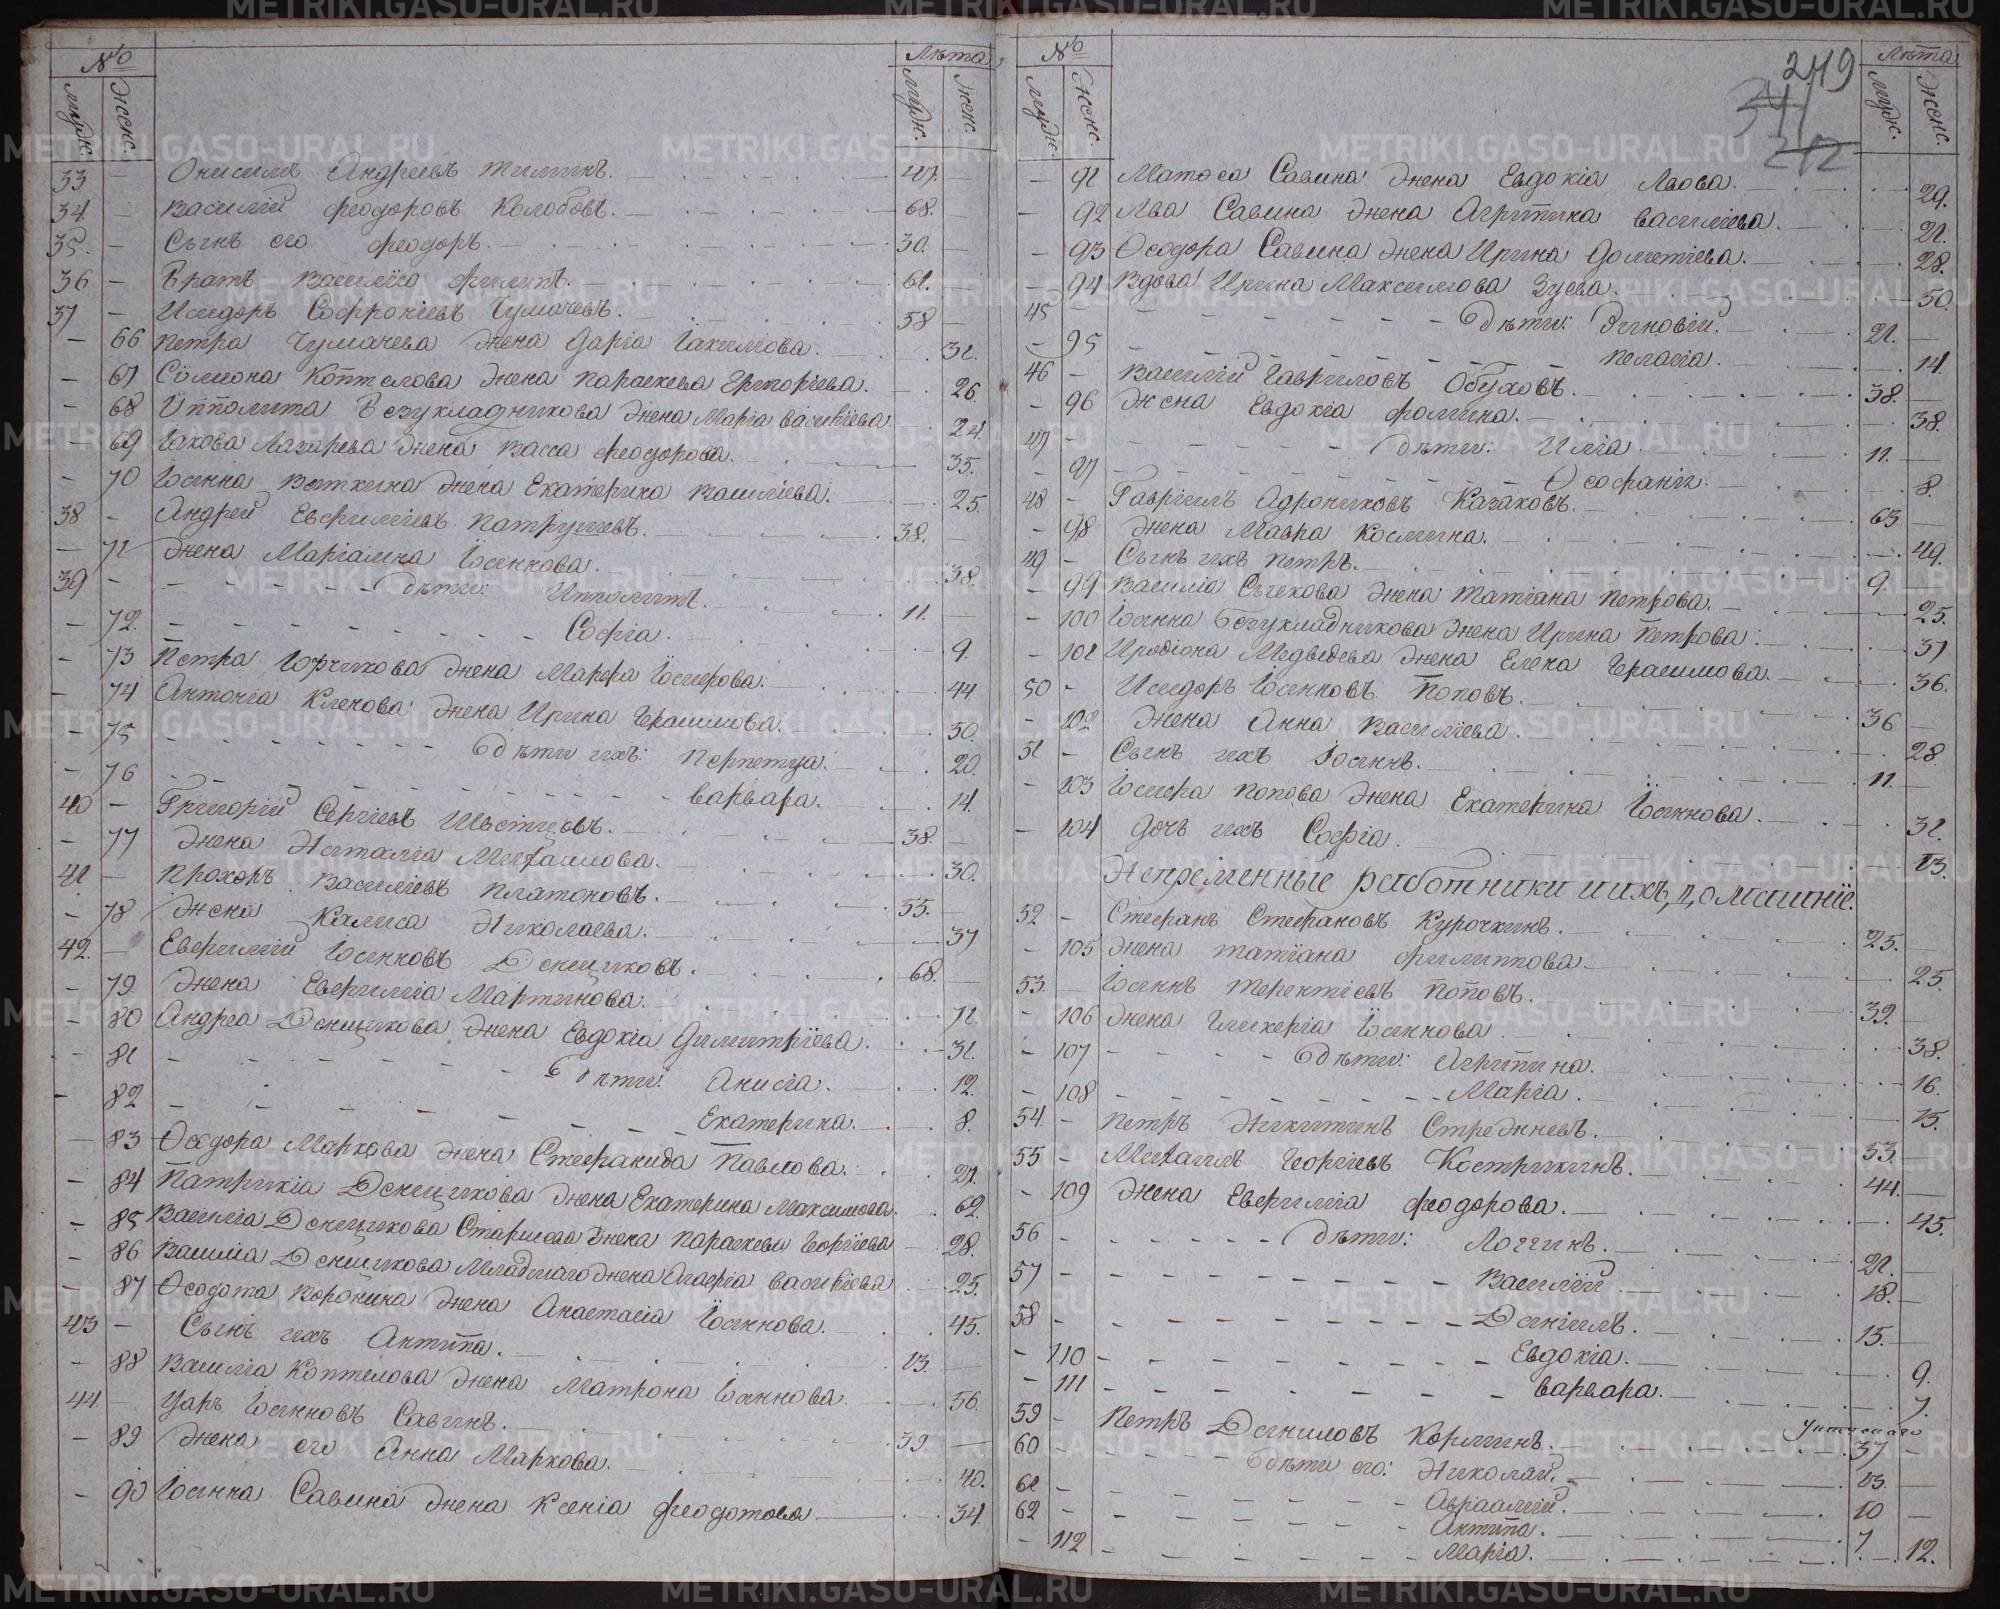 № Лѣта
муж. женс. муж. женс.
33 – Онисимъ Андреевъ Тилинъ. 47. –
34. – Василій Феодоровъ Колобовъ. 68. –
35. – Сынъ его Феодоръ. 30. –
36 – Братъ Василія Филипъ. 61. –
37 – Исидоръ Софроніевъ Чумачевъ. 58 –
– 66 Петра Чумачева жена Дарія Іакимова. 31.
– 67 Сѵмеона Коптелова жена Параскева Григоріева. 26.
– 68 Ипполита Безукладникова жена Марія Василіева 24.
– 69 Іакова Лазарева жена Васса Феодорова. 35.
– 70 Іоанна Вяткина жена Екатерина Василіева. 25.
38 – Андрей Евфиміевъ Патрушевъ. 38. –
– 71 Жена Маріамна Іоаннова. 38.
39 – Дѣти: Ипполитъ. 11. –
– 72. Софія. 9.
– 73 Петра Горчикова жена Марфа Іосифова. 44
– 74 Антонія Кленова жена Ирина Герасимова. 50.
– 75 Дѣти ихъ: Перпетуа. 20.
– 76 Варвара. 14.
40 – Григорій Сергіевъ Швецовъ. 38. –
– 77 Жена Наталія Михаилова. 30.
41. – Прохоръ Василіевъ Платоновъ. 55. –
– 78 Жена Калиса Николаева. 37
42. – Евфимій Іоанновъ Денщиковъ. 68. –
– 79. Жена Евфимія Мартинова. 71.
– 80 Андреа Денщикова жена Евдокіа Димитріева. 31.
– 81 Дѣти: Анисіа. 12.
– 82 Екатерина. 8.
– 83 Ѳеодора Маркова жена Стефанида Павлова. 21.
– 84 Патрикіа Денщикова жена Екатерина Максимова. 62.
– 85 Василіа Денщикова Старшева жена Параскева Георгіева 28.
– 86 Василіа Денщикова Младшаго жена Агафіа Василіева 25.
– 87 Ѳеодота Воронина жена Анастасіа Іоаннова. 45.
43 – Сынъ ихъ Антипа. 13. –
– 88 Василіа Коптелова жена Матрона Іоаннова 56.
44 – Уаръ Іоанновъ Савинъ. 39. –
– 89 Жена его Анна Маркова. 40.
– 90 Іоанна Савина жена Ксенія Феодотова 34.
№ 249 Лѣта
341
муж. женс. муж. женс.
– 91 Матѳеа Савина жена Евдокіа Львова. 29.
– 92 Льва Савина жена Агрипина Василіева. 21.
– 93 Ѳеодора Савина жена Ирина Дометіева. 28.
– 94 Вдова Ирина Максимова Зуева. 50.
45 – Дѣти: Зиновій. 21. –
– 95 Пелагіа. 14.
46 – Василій Гавриловъ Обуховъ. 38. –
– 96 Жена Евдокіа Фомина. 38.
47 – Дѣти: Иліа. 11. –
– 97 Ѳеофаніа. 8.
48 – Гавріилъ Адрониковъ Казаковъ. 63. –
– 98 Жена Мавра Космина. 49.
49 – Сынъ ихъ Петръ. 9. –
– 99 Василіа Сычекова жена Татіана Петрова. 25.
– 100 Іоанна Безукладникова жена Ирина Петрова 37
– 101 Иродіона Медведева жена Елена Герасимова. 36.
50 – Исидоръ Іоанновъ Поповъ. 36 –
– 102 Жена Анна Василіева. 28.
51 – Сынъ ихъ Іоаннъ. 11. –
– 103 Іосифа Попова жена Екатерина Іоаннова 31.
– 104 Дочь ихъ Софіа. 13.
Непременные работники и ихъ домашніе.
52 – Стефанъ Стефановъ Курочкинъ. 25. –
– 105 Жена Татіана Филиппова. 25.
53. – Іоаннъ Терентіевъ Поповъ. 39. –
– 106 Жена Гликеріа Іоаннова. 38.
– 107 Дѣти: Агрипина. 16.
– 108 Маріа. 15.
54. – Петръ Никитинъ Стрежневъ. 53. –
55 – Михаилъ Георгіевъ Кострикинъ. 44. –
– 109 Жена Евфиміа Феодорова. 45.
56 – Дѣти: Логгинъ. 21. –
57 – Василій 18. –
58 – Даніилъ. 15. –
– 110 Евдокіа. 9.
– 111 Варвара. 7.
59 – Петръ Даниловъ Корминъ. 37 –
60 – Дѣти его: Николай. 13. –
61 – Авраамій. 10 –
62 – Антипа. 7 –
– 112 Маріа. 12.